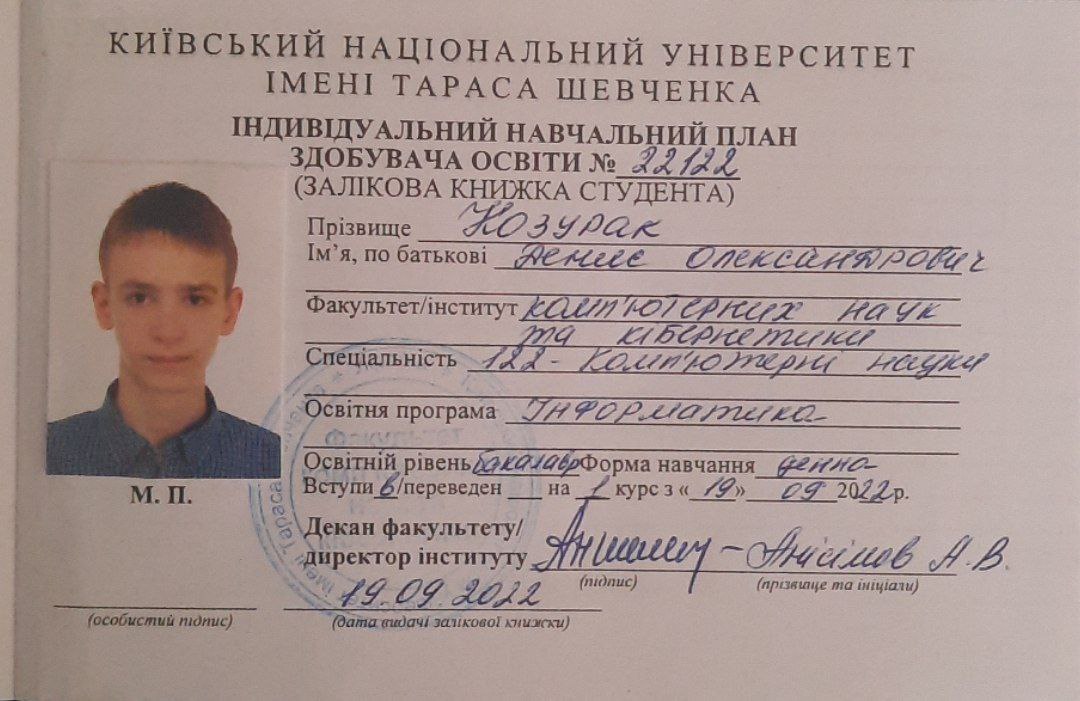 КИЇВСЬКИЙ НАЦІОНАЛЬНИЙ УНІВЕРСИТЕТ
ІМЕНІ ТАРАСА ШЕВЧЕНКА
ІНДИВІДУАЛЬНИЙ НАВЧАЛЬНИЙ ПЛАН
ЗДОБУВАЧА ОСВІТИ № 22122
(ЗАЛІКОВА КНИЖКА СТУДЕНТА)
Прізвище Козурак
Ім’я, по батькові Денис Олександрович
Факультет/інститут комп'ютерних наук
та кібернетики
Спеціальність 122 - Комп'ютерні науки
Освітня програма Інформатика
Освітній рівень бакалавр Форма навчання денна
Вступив/переведен на 1 курс з «19» 09 2022 р.
М. П.
Декан факультету/
директор інституту Анісімов А.В.
(підпис) (прізвище та ініціали)
19.09.2022
(особистий підпис) (дата видачі залікової книжки)